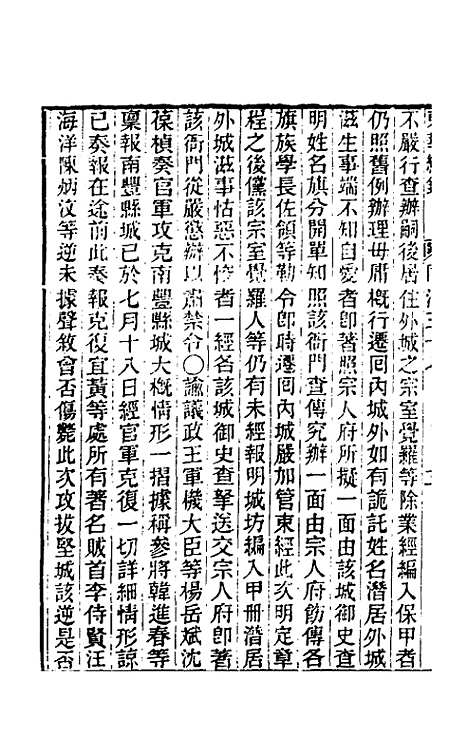 不嚴行查辦嗣後居住外城之宗室覺羅等除業經編入保甲者
仍照舊例辦理毋庸概行遷囘內城外如有詭託姓名潛居外城
滋生事端不知自愛者卽著照宗人府所擬一面由該城御史查
明姓名旗分開單知照該衙門查傳究辦一面由宗人府飭傳各
旗族學長佐領等勒令卽時遷囘內城嚴加管束經此次明定章
程之後儻該宗室覺羅人等仍有未經報明城坊編入甲冊潛居
外城滋事怙惡不悛者一經各該城御史查拏送交宗人府卽著
該衙門從嚴懲辦以肅禁令〇諭議政王軍機大臣等楊岳斌沈
葆楨奏官軍攻克南豐縣城大概情形一摺據稱參將韓進春等
稟報南豐縣城已於七月十八日經官軍克復一切詳細情形諒
已奏報在途前此奏報克復宜黃等處所有著名賊首李侍賢汪
海洋陳炳汶等逆未據聲敘曾否傷斃此次攻拔堅城該逆是否